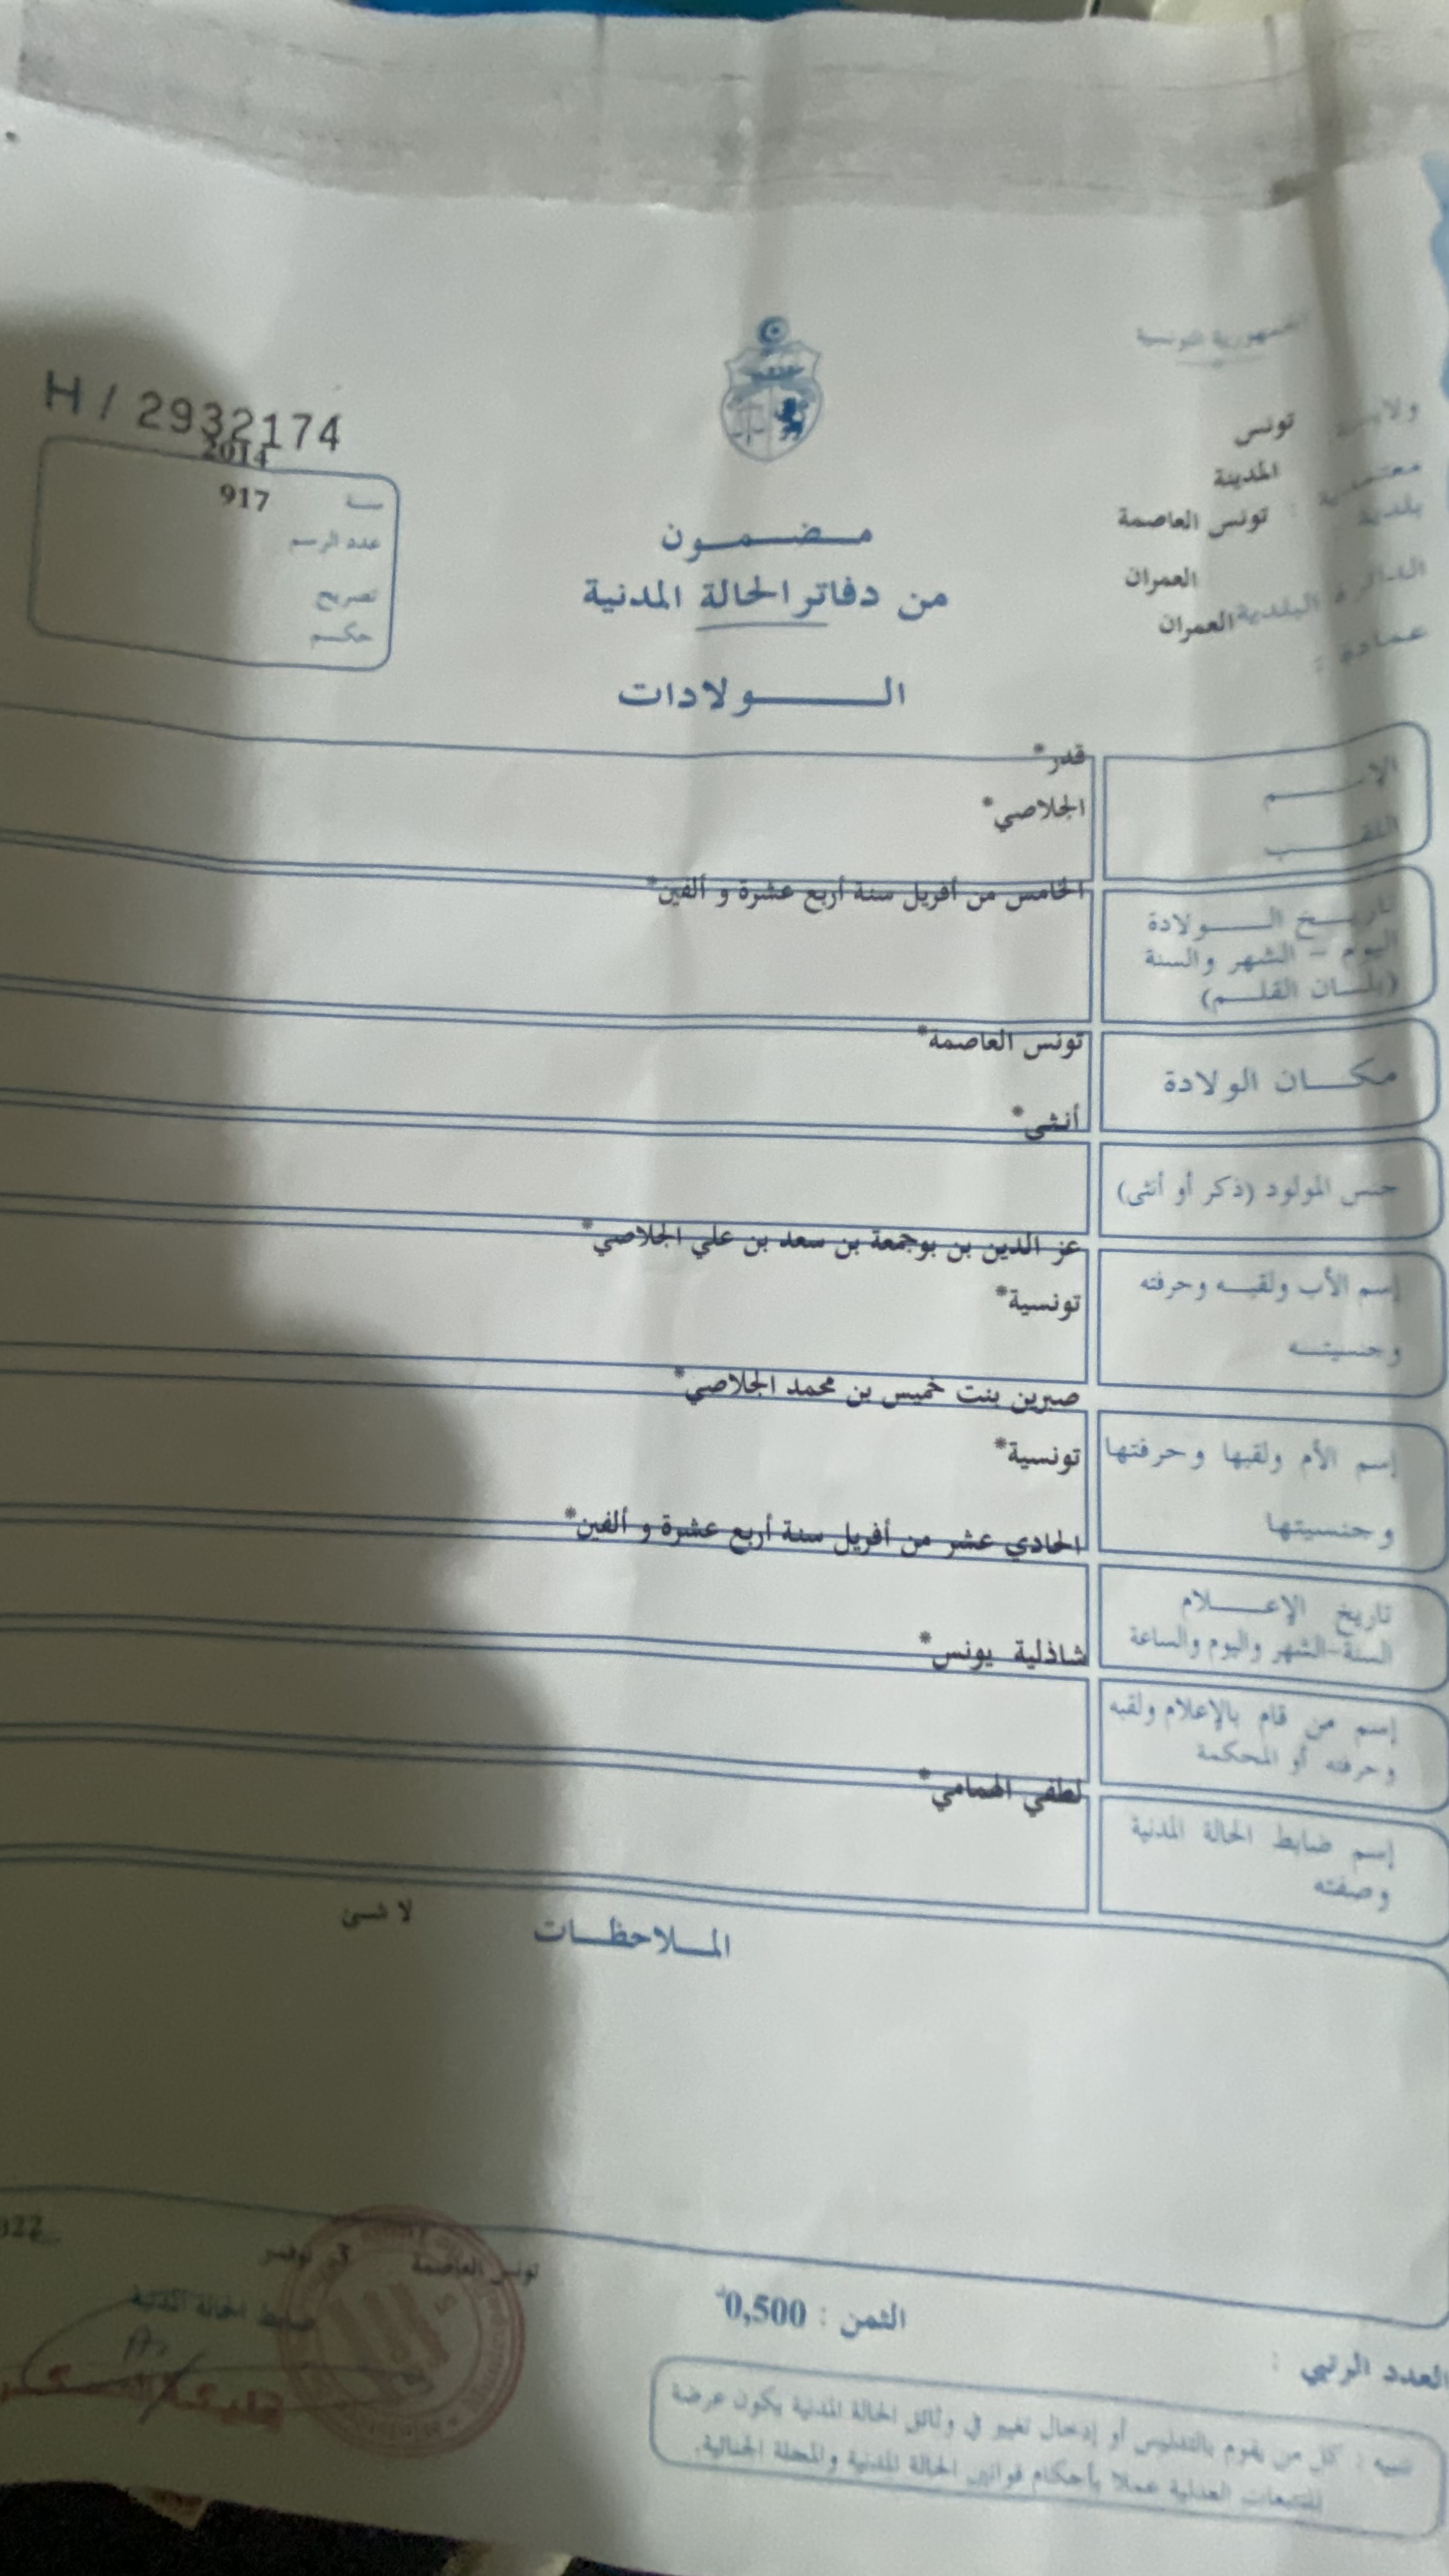 الجمهورية التونسية
ولايـــة تونس
معتمدية : المدينة
بلدية تونس العاصمة
الدائرة البلدية العمران
عمادة : العمران
H / 2932174
سنة 2014
عدد الرسم 917
تصريح
حكـــم
مـــضـــمـــون
من دفاتر الحالة المدنية
الـــولادات
الإســـم قدر*
اللقـــب الجلاصي*
تاريـــخ الـــولادة
اليوم - الشهر والسنة
(بلســان القلـــم)
الخامس من أفريل سنة أربع عشرة و ألفين*
مكـــان الولادة تونس العاصمة*
جنس المولود (ذكر أو أنثى) أنثى*
إسم الأب ولقبــه وحرفته عز الدين بن بوجمعة بن سعد بن علي الجلاصي*
وجنسيتــه تونسية*
إسم الأم ولقبها وحرفتها صبرين بنت خميس بن محمد الجلاصي*
وجنسيتها تونسية*
تاريخ الإعـــلام
السنة-الشهر واليوم والساعة
الحادي عشر من أفريل سنة أربع عشرة و ألفين*
إسم من قام بالإعلام ولقبه
وحرفته أو المحكمة
شاذلية يونس*
إسم ضابط الحالة المدنية
وصفته
لطفي الهمامي*
المـــلاحظـــات لا شئ
تونس العاصمة في نوفمبر 022
ضابط الحالة المدنية
الثمن : 0,500د
العدد الرتبي :
تنبيه : كل من يقوم بالتدليس أو إدخال تغيير في وثائق الحالة المدنية يكون عرضة
للتتبعات العدلية عملا بأحكام قوانين الحالة المدنية والمجلة الجنائية.